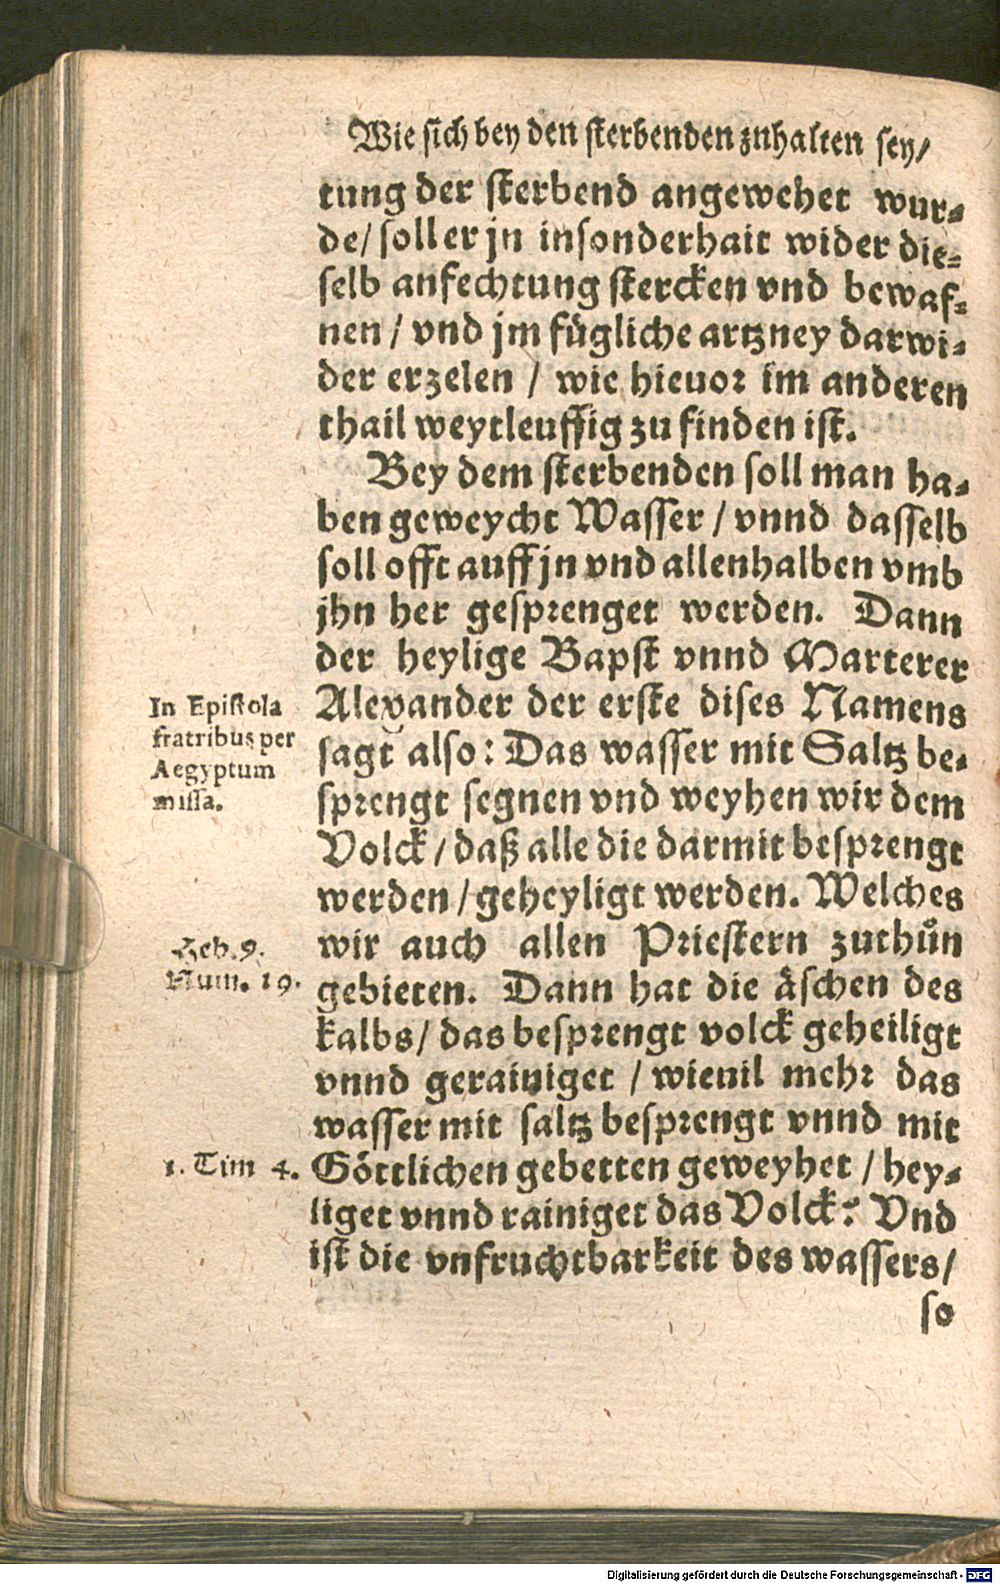 Wie sich bey den sterbenden zuhalten sey/
tung der sterbend angewehet wur-
de/ soll er jn insonderhait wider die-
selb anfechtung stercken vnd bewaf-
nen / vnd jm fügliche artzney darwi-
der erzelen / wie hieuor im anderen
thail weytleuffig zu finden ist.
Bey dem sterbenden soll man ha-
ben geweycht Wasser / vnnd dasselb
soll offt auff jn vnd allenhalben vmb
jhn her gesprenget werden. Dann
der heylige Bapst vnnd Marterer
In Epistola
fratribus per
Aegyptum
missa.
Alexander der erste dises Namens
sagt also: Das wasser mit Saltz be-
sprengt segnen vnd weyhen wir dem
Volck / daß alle die darmit besprengt
werden / geheyligt werden. Welches
Heb. 9.
Num. 19.
wir auch allen Priestern zuthůn
gebieten. Dann hat die äschen des
kalbs/ das besprengt volck geheiligt
vnnd gerainiget / wieuil mehr das
wasser mit saltz besprengt vnnd mit
1. Tim 4.
Göttlichen gebetten geweyhet / hey-
liget vnnd rainiget das Volck? Vnd
ist die vnfruchtbarkeit des wassers/
so
Digitalisierung gefördert durch die Deutsche Forschungsgemeinschaft - DFG